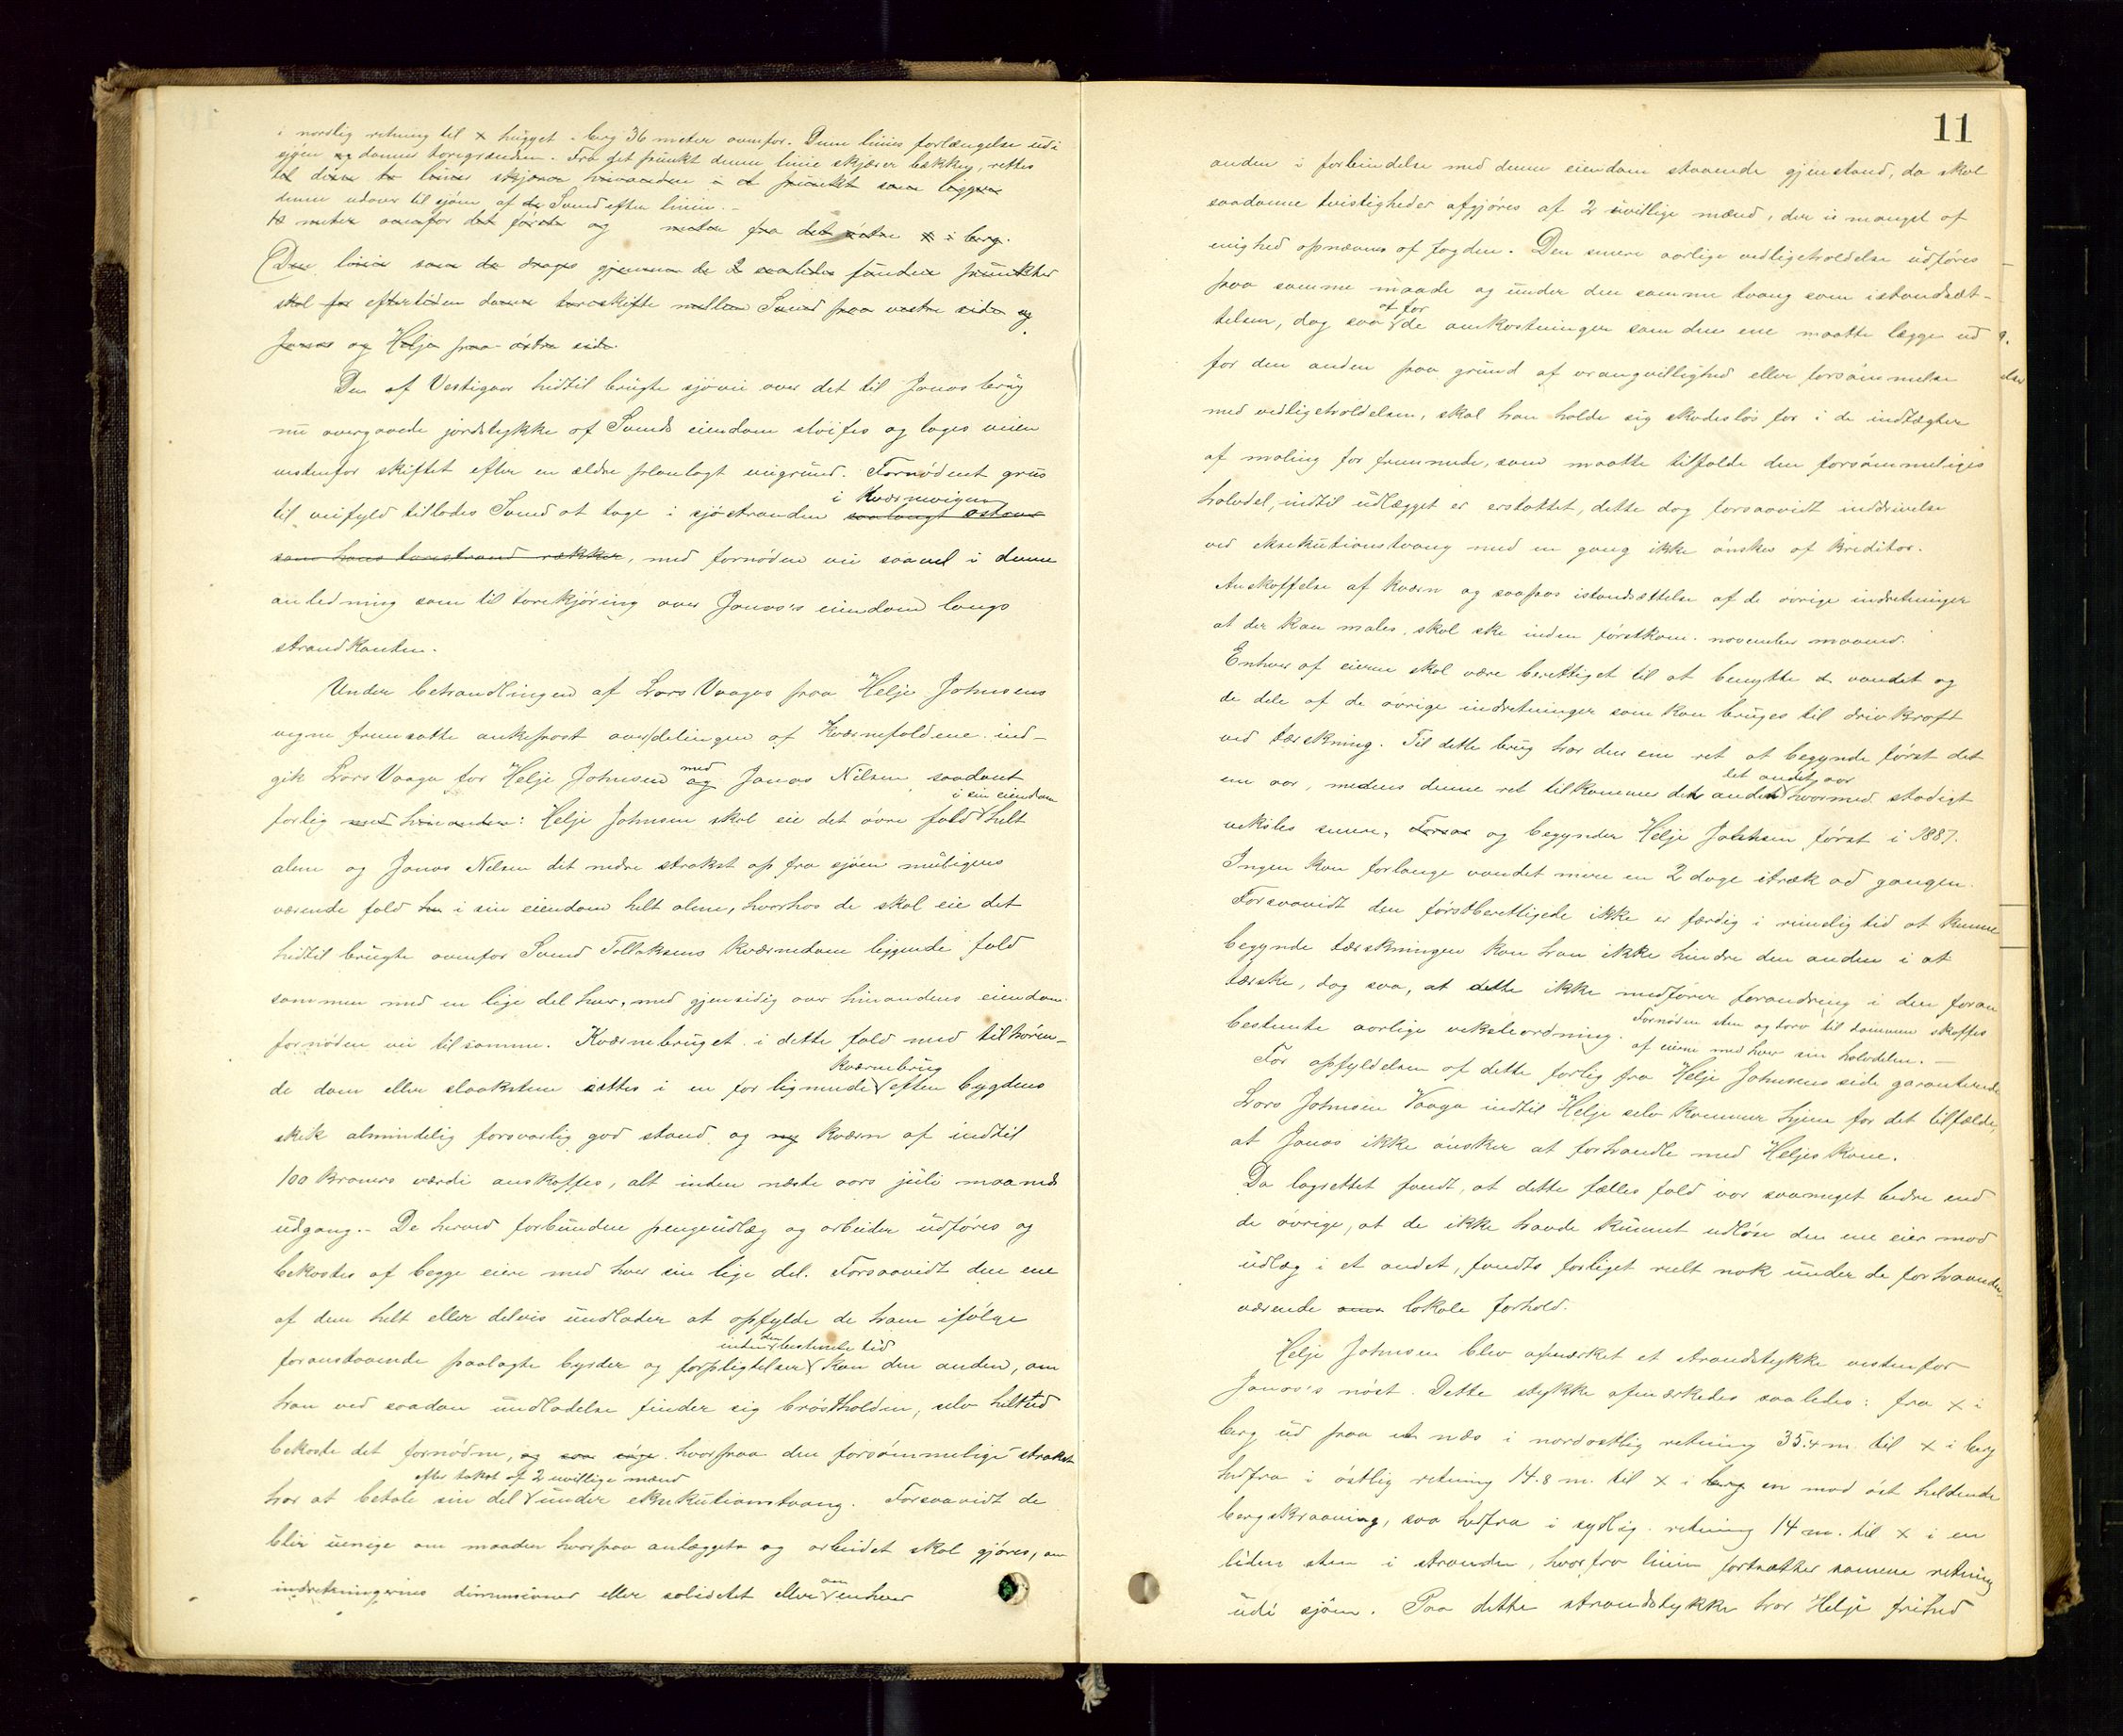 i nordlig retning til x hugget i berg 36 meter ovenfor. Denne linies forlængelse udi
sjøen og danner toregrændsen. Fra det punkt denne linie skjærer bækken, rettes
til disse to linier skjærer hinanden i et punkt som ligger
denne udover til sjøen af de Svend efter linien.
10 meter ovenfor det første og meter fra det østre x i berg.
(Den linie som da drages gjennem de 2 saaledes fundne punkter
skal for eftertiden danne toreskifte mellem Svend paa vestre side og
Jonas og Helje paa østre side.
Den af Vestigaar hidtil brugte sjøvei over det til Jonas brug
nu overgaaede jordstykke af Svends eiendom sløifes og lages veien
vestenfor skiftet efter en ældre planlagt veigrund. Fornødent grus
i Kværnevigen
til veifyld tillodes Svend at tage i sjøstranden saalangt østover
som hans torestrand rækker, med fornøden vei saavel i denne
anledning som til torekjøring over Jonas's eiendom langs
strandkanten.
Under behandlingen af Lars Vaages paa Helje Johnsens
vegne fremsatte ankepost over delingen af Kværnefaldene ind-
gik Lars Vaage for Helje Johnsen og med Jonas Nilsen saadant
i sin eiendom
forlig med hinanden: Helje Johnsen skal eie det øvre fald helt
alene og Jonas Nilsen det nedre strakst op fra sjøen muligens
værende fald i sin eiendom helt alene, hvorhos de skal eie det
hidtil brugte ovenfor Svend Tollaksens Kværnedam liggende fald
sammen med en lige del hver, med gjensidig over hinandens eiendom
fornøden vei til samme. Kværnebruget i dette fald med tilhøren-
kværnebrug
de dam eller slaaksten sættes i en for lignende efter bygdens
skik almindelig forsvarlig god stand og ny kværn af indtil
100 Kroners værdi anskaffes, alt inden næste aars juli maaneds
udgang. - De herved forbundne pengeudlæg og arbeider udføres og
bekostes af begge eiere med hver sin lige del. Forsaavidt den ene
af dem helt eller delvis undlader at opfylde de ham ifølge
inden den bestemte tid
foranstaaende paalagte byrder og forpligtelser kan den anden, om
han ved saadan undladelse finder sig brøstholden, selv heltud
bekoste det fornødne, og saa søge hvorpaa den forsømmelige strakst
efter takst af 2 uvillige mænd
har at betale sin del under eksekutionstvang. Forsaavidt de
blir uenige om maaden hvorpaa anlægget og arbeidet skal gjøres, om
indretningernes dimensioner eller soliditet eller om enhver
11
anden i forbindelse med denne eiendom staaende gjenstand, da skal
saadanne tvistigheder afgjøres af 2 uvillige mænd, der i mangel af
enighed opnævnes af fogden. Den senere aarlige vedligeholdelse udføres
paa samme maade og under den samme tvang som istandsæt-
at for
telsen, dog saa de omkostninger som den ene maatte lægge ud
for den anden paa grund af vrangvillighed eller forsømmelse
med vedligeholdelsen, skal han holde sig skadesløs for i de indtægter
af maling for fremmede, som maatte tilfalde den forsømmeliges
halvdel, indtil udlægget er erstattet, dette dog forsaavidt inddrivelse
ved eksekutionstvang med en gang ikke ønskes af kreditor.
Anskaffelse af kværn og saapas istandsættelse af de øvrige indretninger
at der kan males, skal ske inden førstkom. november maaned.
Enhver af eierne skal være berettiget til at benytte de vandet og
de dele af de øvrige indretninger som kan bruges til drivkraft
ved tærskning. Til dette brug har den ene ret at begynde først det
det andet aar
ene aar, medens denne ret tilkommer den anden hvormed stadigt
veksles senere, og begynder Helje Johnsen først i 1887.
Ingen kan forlange vandet mere en 2 dage itræk ad gangen.
Forsaavidt den førstberettigede ikke er færdig i rimelig tid at kunne
begynde tærskningen kan han ikke hindre den anden i at
tærske, dog saa, at dette ikke medfører forandring i den foran
bestemte aarlige veksleordning. Fornøden sten og torv til dammen skaffes
af eierne med hver sin halvdelen. -
For opfyldelsen af dette forlig fra Helje Johnsens side garanterede
Lars Johnsen Vaage indtil Helje selv kommer hjem for det tilfælde,
at Jonas ikke ønsker at forhandle med Heljes kone.
Da lagrettet fandt, at dette fælles fald var saameget bedre end
de øvrige, at de ikke havde kunnet udløse den ene eier mod
udlæg i et andet, fandts forliget reelt nok under de forhaanden-
værende lokale forhold.
Helje Johnsen blev afmærket et strandstykke vestenfor
Jonas's nøst. Dette stykke afmærkedes saaledes: fra x i
berg ud paa et næs i nordostlig retning 35.4 m. til x i berg
herfra i østlig retning 14.8 m. til x i berg en mod øst heldende
bergskraaning, saa herfra i sydlig retning 14 m. til x i en
liden sten i stranden, hvorfra linien fortsætter samme retning
udi sjøen. Paa dette strandstykke har Helje frihed